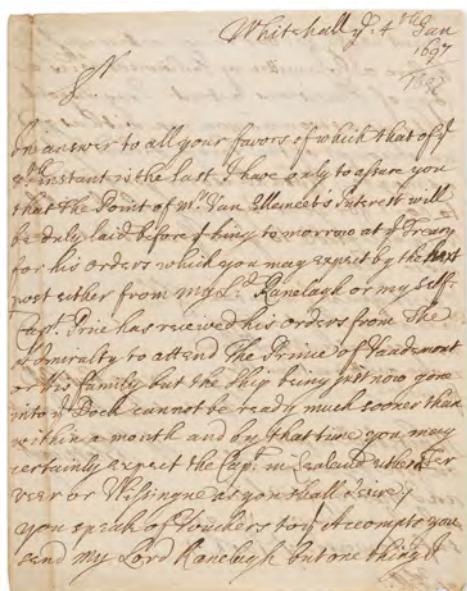 Whitehall ye. 4th Jan
1697
Sr
In answer to all your favors of which that of ye
8th Instant is the last I have only to assure you
that the Point of Mr. Van Ellemeet's Interest will
be duly laid before ye king to morrow at ye Treasry
for his orders which you may expect by the next
post either from My Ld. Ranelagh or my self.
Capt. Price has received his orders from The
Admiralty to attend The Prince of Vaudemont
or His family but the Ship being just now gone
into ye Dock cannot be ready much sooner than
within a month and by that time you may
certainly expect the Capt. in Zealand either Ter
veer or Vlisingue as you shall desire;
you speak of Vouchers to ye Accompts you
send my Lord Ranelagh but one thing I